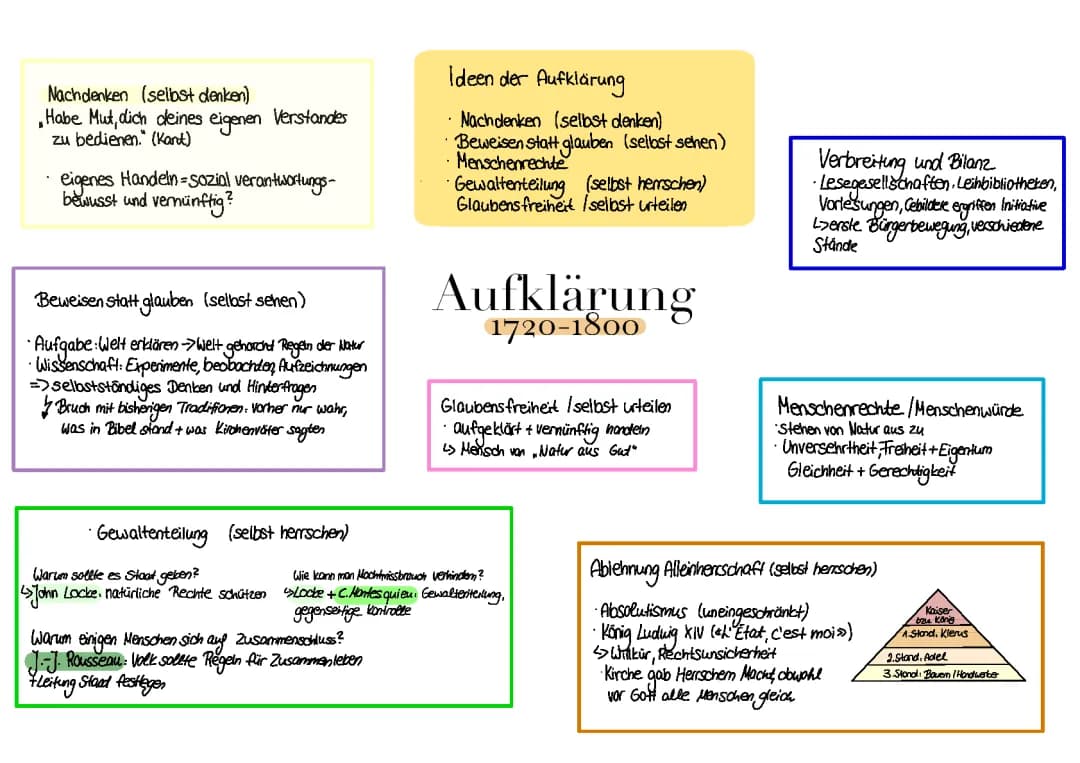 Nachdenken (selbst denken)
„Habe Mut, dich deines eigenen Verstandes
zu bedienen." (Kant)
· eigenes Handeln = sozial verantwortungs-
bewusst und vernünftig?
Ideen der Aufklärung
· Nachdenken (selbst denken)
· Beweisen statt glauben (selbst sehen)
· Menschenrechte
· Gewaltenteilung (selbst herrschen)
Glaubensfreiheit / selbst urteilen
Verbreitung und Bilanz
· Lesegesellschaften, Leihbibliotheken,
Vorlesungen, Gebildete ergriffen Initiative
↳ erste Bürgerbewegung, verschiedene
Stände
Beweisen statt glauben (selbst sehen)
· Aufgabe: Welt erklären → Welt gehorcht Regeln der Natur
· Wissenschaft: Experimente, beobachten, Aufzeichnungen
=> selbstständiges Denken und Hinterfragen
↯ Bruch mit bisherigen Traditionen: vorher nur wahr,
was in Bibel stand + was Kirchenväter sagten
Aufklärung
1720-1800
Glaubensfreiheit / selbst urteilen
· aufgeklärt + vernünftig handeln
↳ Mensch von „Natur aus Gut"
Menschenrechte / Menschenwürde
· stehen von Natur aus zu
· Unversehrtheit, Freiheit + Eigentum
Gleichheit + Gerechtigkeit
· Gewaltenteilung (selbst herrschen)
Warum sollte es Staat geben?
↳ John Locke: natürliche Rechte schützen
Wie kann man Machtmissbrauch verhindern?
↳ Locke + C. Montesquieu: Gewaltenteilung,
gegenseitige Kontrolle
Warum einigen Menschen sich auf Zusammenschluss?
J.-J. Rousseau: Volk sollte Regeln für Zusammenleben
+ Leitung Staat festlegen
Ablehnung Alleinherrschaft (selbst herrschen)
· Absolutismus (uneingeschränkt)
· König Ludwig XIV («L'État, c'est moi»)
↳ Willkür, Rechtsunsicherheit
· Kirche gab Herrschern Macht, obwohl
vor Gott alle Menschen gleich
Kaiser
bzw. König
1. Stand: Klerus
2. Stand: Adel
3. Stand: Bauern / Handwerker